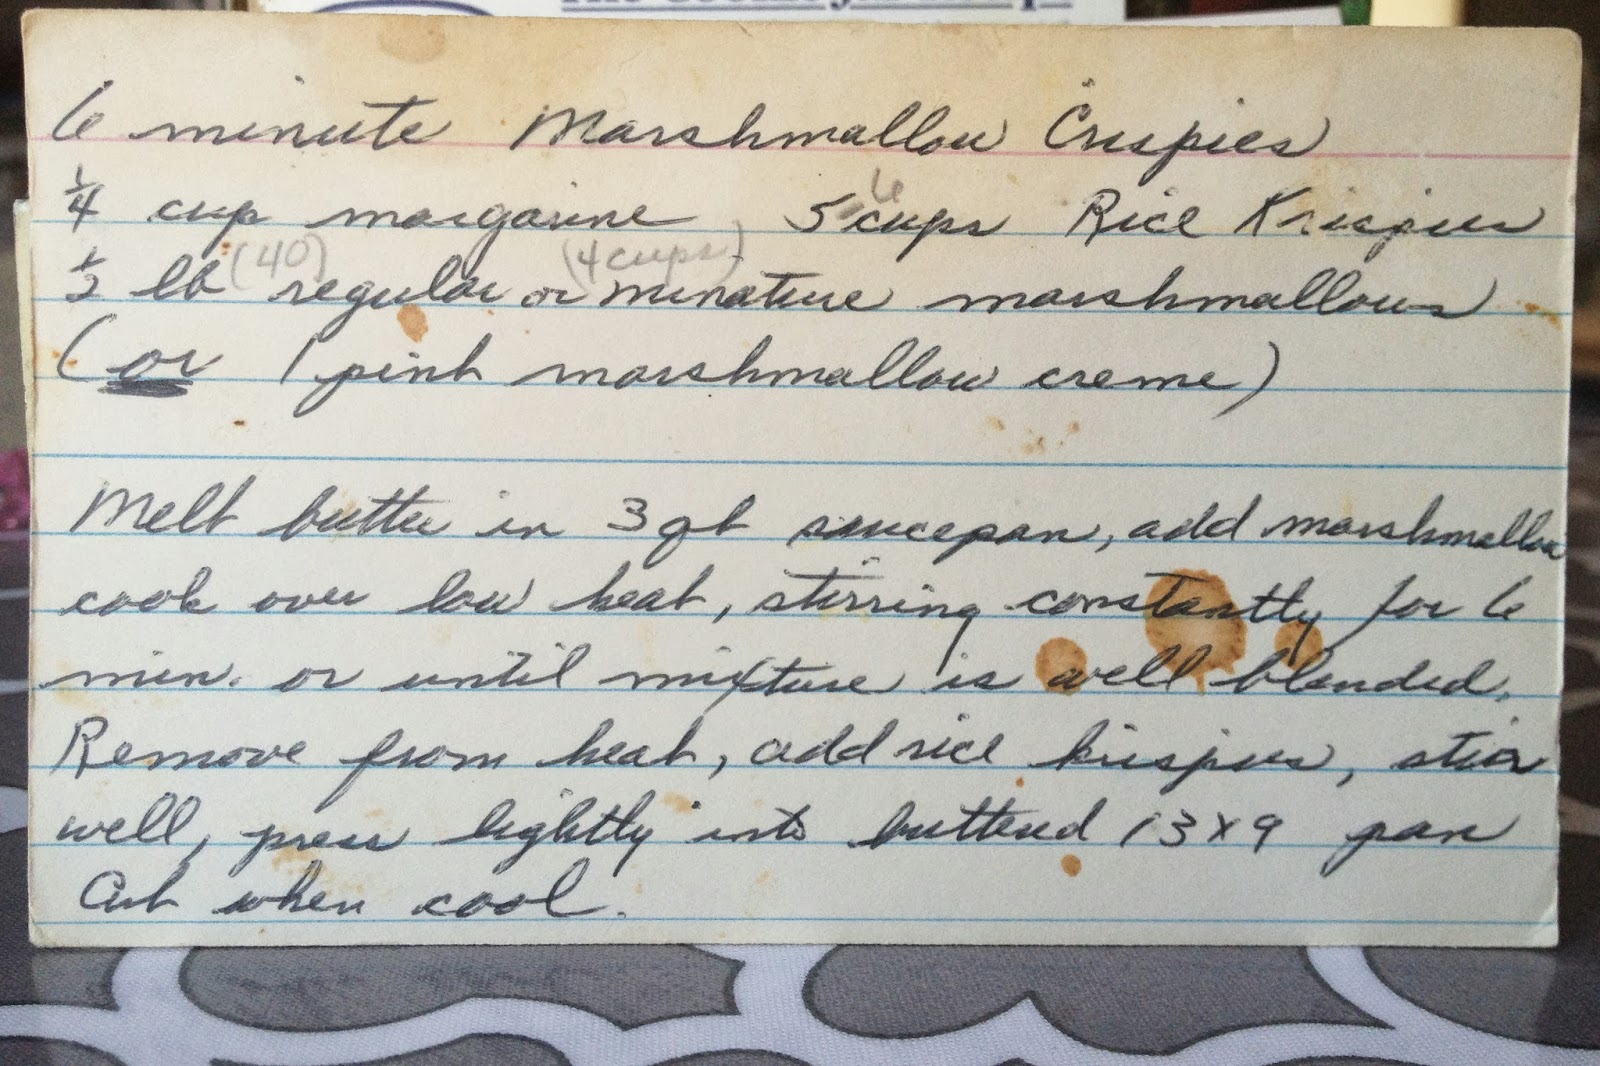 6 minute Marshmallow Crispies
1/4 cup margarine 5 6 cups Rice Krispies
1/2 lb (40) regular or (4 cups) minature marshmallows
(or 1 pint marshmallow creme)
Melt butter in 3 qt saucepan, add marshmallow
cook over low heat, stirring constantly for 6
min. or until mixture is well blended.
Remove from heat, add rice krispies, stir
well, press lightly into buttered 13x9 pan
Cut when cool.